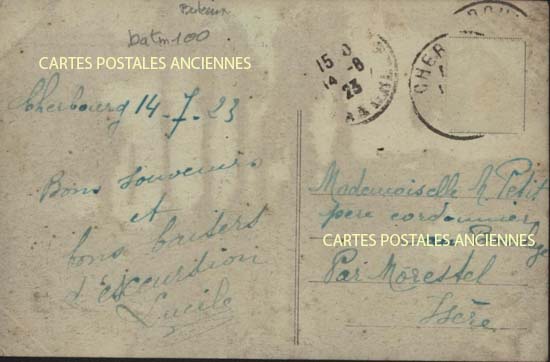 Bateaux
batm-100
CARTES POSTALES ANCIENNES
Cherbourg 14-7-23
Bons souvenirs
et
bons baisers
d'excursion
Lucile
15
14-8
23
CHER
Mademoiselle M. Petit
père cordonnier
CARTES POSTALES ANCIENNES
Par Morestel
Isère